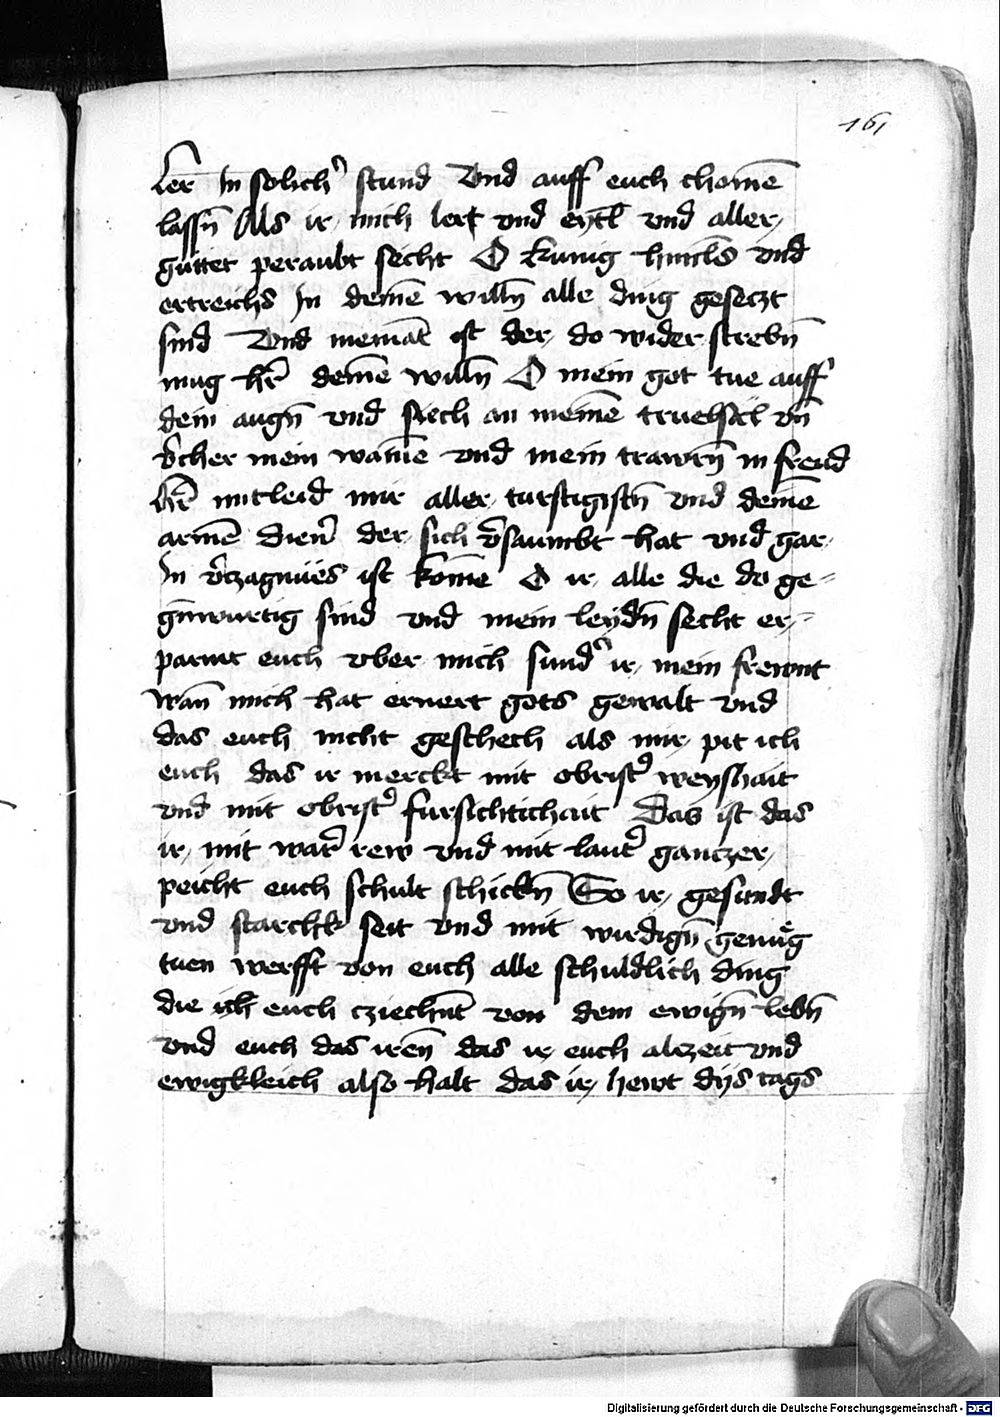 161
ler̄ In solich̉ stund Vnd auff euch chomē
lassn̄ Als ir mich lert vnd eytl̄ vnd aller
guttet peraubt secht O kunig himels vnd
ertreichs In demē willn̄ alle ding gesetzt
sind Vnd niemāt ist der do wider strebn̄
mug hr̄ demē willn̄ O mein got tue auff
dein augn̄ vnd siech an meinē truebsal vn̄
v̉cher mein wainē vnd mein trawrn̄ in freud
hr̄ mitleid mir aller turftigistn̄ vnd deinē
armē dien̉ der sich v̉saumbt hat vnd gar
In v̉czagnües ist komē O ir alle die do ge-
gnwurtig sind vnd mein leydn̄ secht er-
parmt euch vber mich sund̉ ir mein frewnt
wan̄ mich hat ernert gots gewalt vnd
das euch nicht geschech als mir pit ich
euch das ir merckt mit obrist̉ weyshait
vnd mit obrist̉ fursichtichait Das ist das
ir mit war̉ rew vnd mit laut̉ ganczer
peicht euch schult schickn̄ So ir gesundt
vnd starchk seit vnd mit wirdign̄ genug
tuen werfft von euch alle schuldlich ding
die ich euch cziechnt von dem ewign̄ lebn̄
vnd euch das irēn das ir euch alczeit vnd
ewigkleich also halt das ir hewt dijs tags
Digitalisierung gefördert durch die Deutsche Forschungsgemeinschaft - DFG